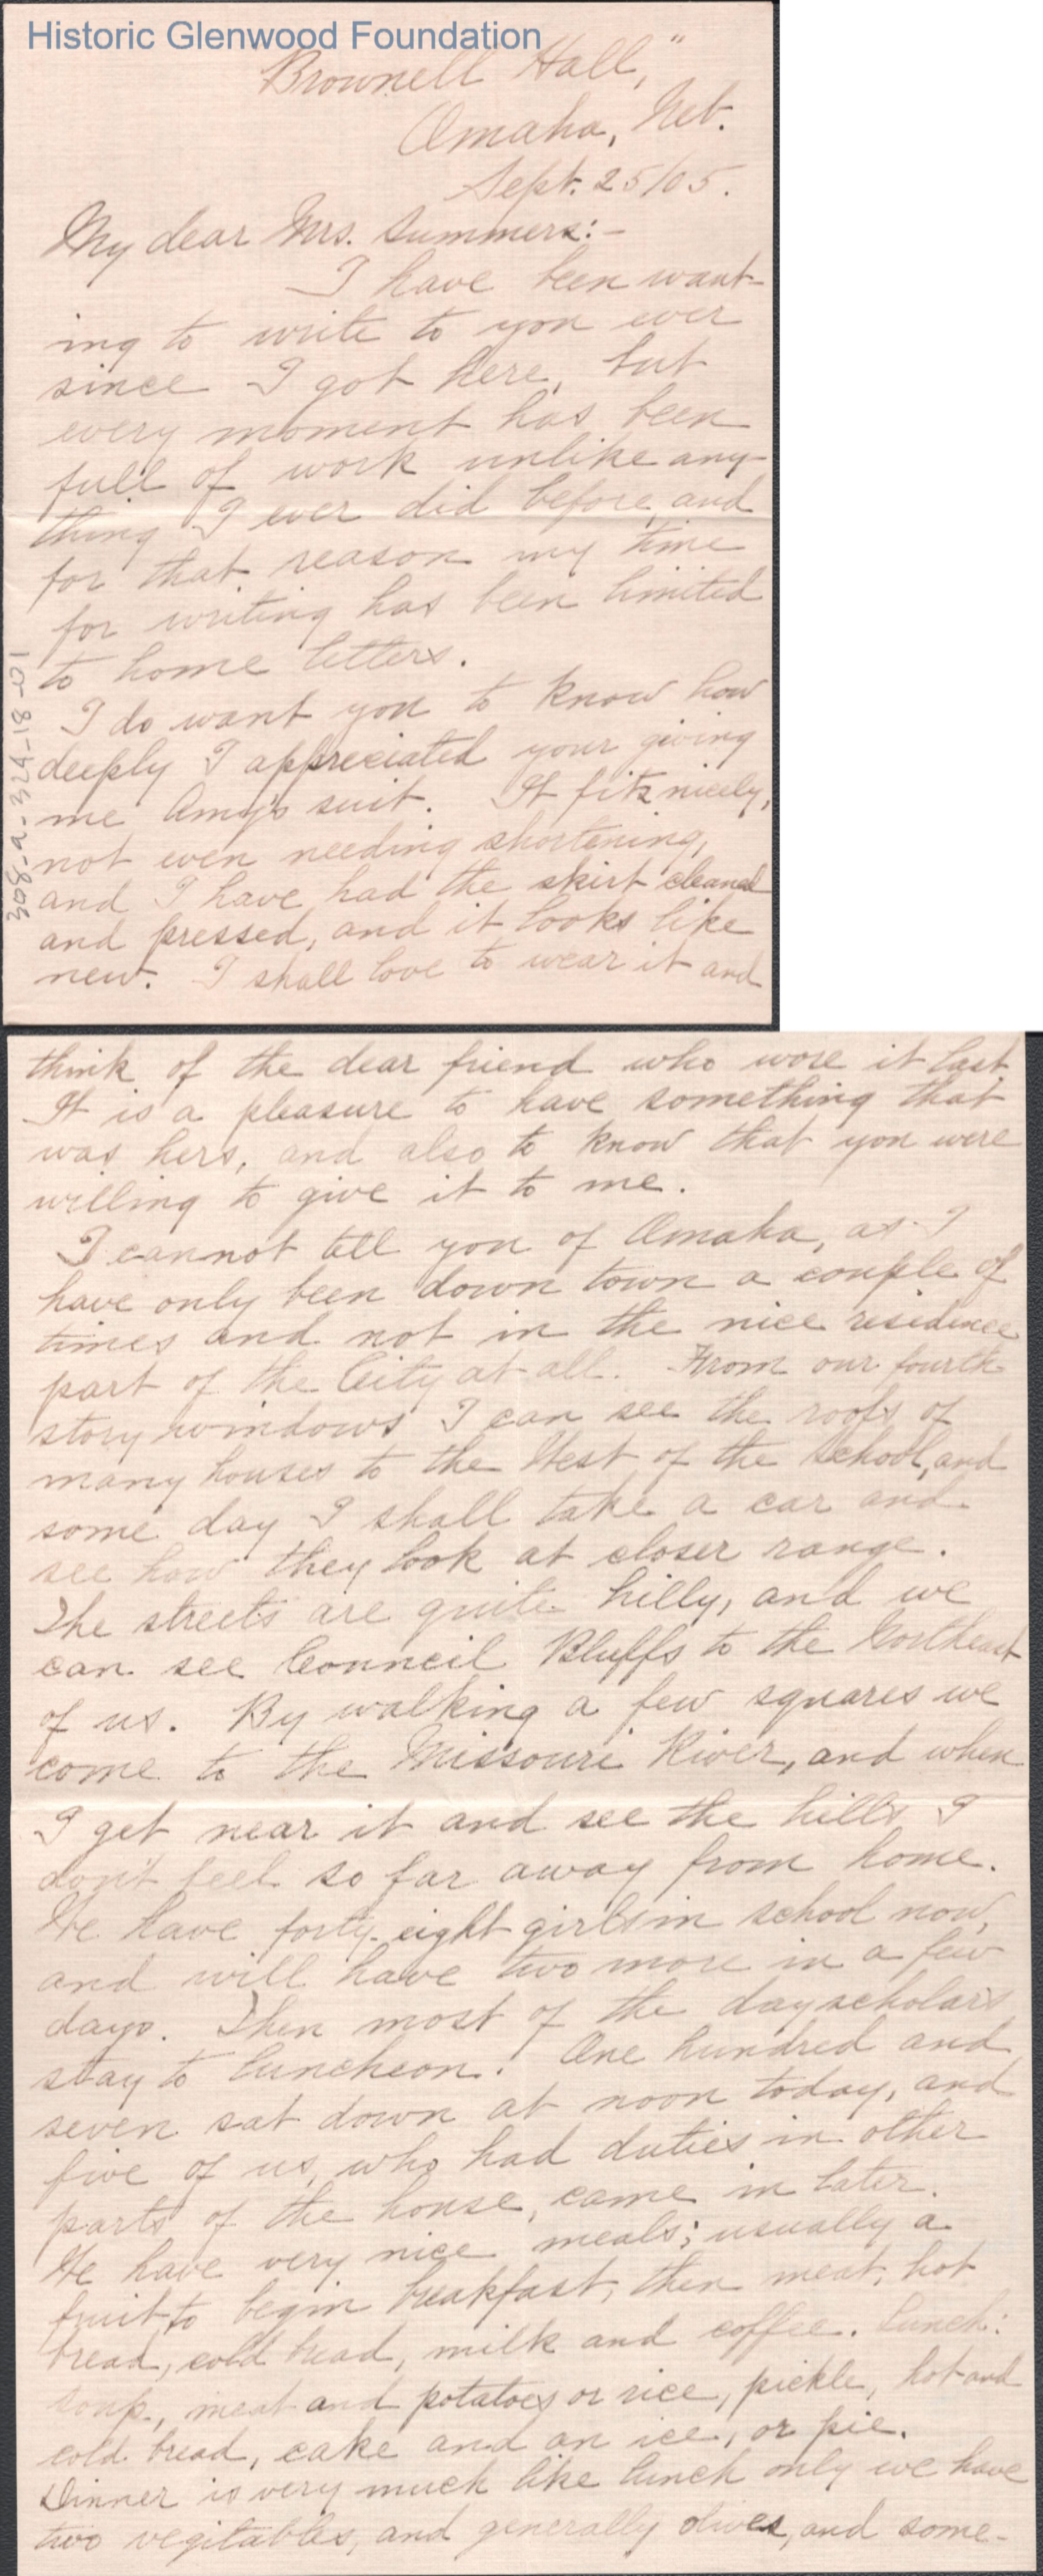 Historic Glenwood Foundation
"Brownell Hall,"
Omaha, Neb.
Sept. 25/05.
My dear Mrs. Summers:-
I have been want-
ing to write to you ever
since I got here, but
every moment has been
full of work unlike any-
thing I ever did before, and
for that reason my time
for writing has been limited
to home letters.
I do want you to know how
deeply I appreciated your giving
me Amy's suit. It fits nicely,
not even needing shortening,
and I have had the skirt cleaned
and pressed, and it looks like
new. I shall love to wear it and
308-a-324-18-01
think of the dear friend who wore it last.
It is a pleasure to have something that
was hers, and also to know that you were
willing to give it to me.
I cannot tell you of Omaha, as I
have only been down town a couple of
times and not in the nice residence
part of the City at all. From our fourth
story windows I can see the roofs of
many houses to the West of the school, and
some day I shall take a car and
see how they look at closer range.
The streets are quite hilly, and we
can see Council Bluffs to the Northeast
of us. By walking a few squares we
come to the Missouri River, and when
I get near it and see the hills I
don't feel so far away from home.
We have forty-eight girls in school now,
and will have two more in a few
days. Then most of the day scholars
stay to luncheon. One hundred and
seven sat down at noon today, and
five of us, who had duties in other
parts of the house, came in later.
We have very nice meals; usually a
fruit to begin breakfast, then meat, hot
bread, cold bread, milk and coffee. Lunch:
soup, meat and potatoes or rice, pickle, hot and
cold bread, cake and an ice, or pie.
Dinner is very much like lunch only we have
two vegitables, and generally olives, and some-